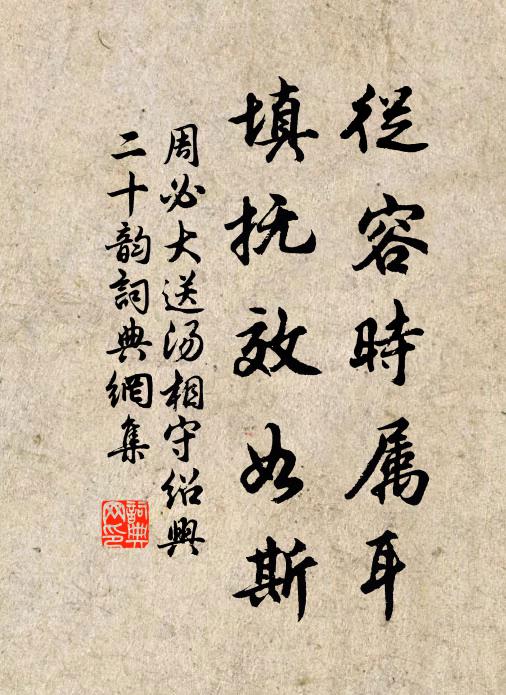 從容時属耳
填抚效如斯
周必大送汤相守绍興
二十韵詞典網集
詞典網印